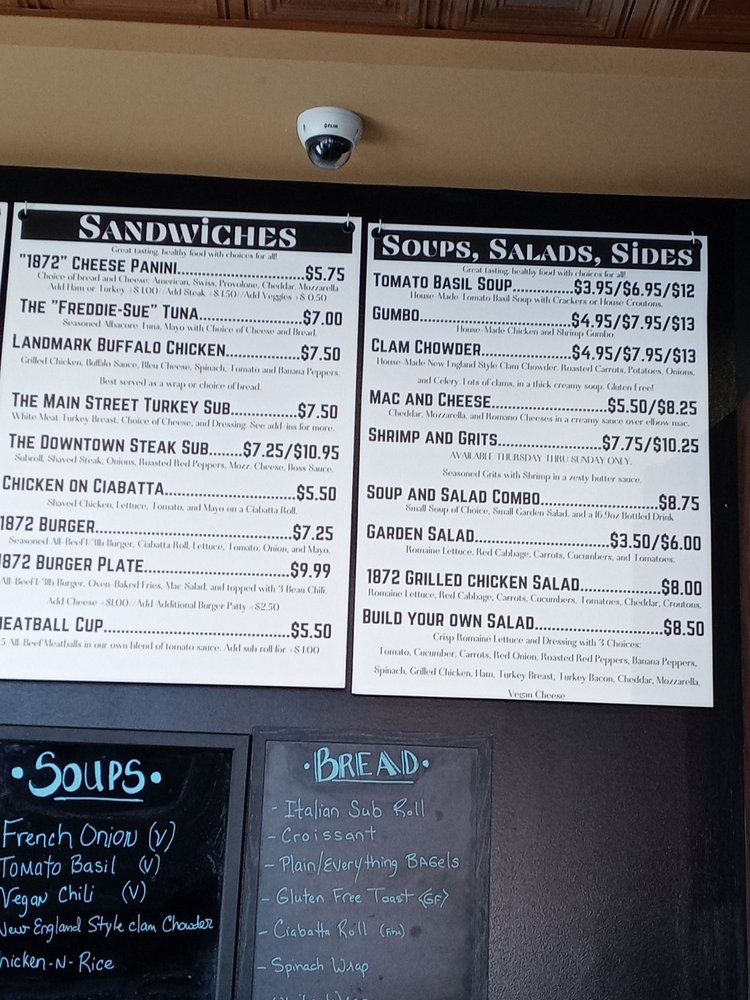 FLIR
SANDWICHES
Great tasting, healthy food with choices for all!
"1872" CHEESE PANINI.......................$5.75
Choice of bread and Cheese: American, Swiss, Provolone, Cheddar, Mozzarella
Add Ham or Turkey +$ 1.00//Add Steak +$ 1.50//Add Veggies +$ 0.50
THE "FREDDIE-SUE" TUNA..................$7.00
Seasoned Albacore Tuna, Mayo with Choice of Cheese and Bread.
LANDMARK BUFFALO CHICKEN.............$7.50
Grilled Chicken, Buffalo Sauce, Bleu Cheese, Spinach, Tomato and Banana Peppers.
Best served as a wrap or choice of bread.
THE MAIN STREET TURKEY SUB............$7.50
White Meat Turkey Breast, Choice of Cheese, and Dressing. See add-ins for more.
THE DOWNTOWN STEAK SUB.......$7.25/$10.95
Subroll, Shaved Steak, Onions, Roasted Red Peppers, Mozz. Cheese, Boss Sauce.
CHICKEN ON CIABATTA.......................$5.50
Shaved Chicken, Lettuce, Tomato, and Mayo on a Ciabatta Roll.
1872 BURGER....................................$7.25
Seasoned All-Beef 1/3lb Burger, Ciabatta Roll, Lettuce, Tomato, Onion, and Mayo.
1872 BURGER PLATE...........................$9.99
All-Beef 1/3lb Burger, Oven-Baked Fries, Mac Salad, and topped with 3 Bean Chili.
Add Cheese +$1.00//Add Additional Burger Patty +$2.50
MEATBALL CUP..................................$5.50
5 All-Beef Meatballs in our own blend of tomato sauce. Add sub roll for +$ 1.00
SOUPS, SALADS, SIDES
Great tasting, healthy food with choices for all!
TOMATO BASIL SOUP...........$3.95/$6.95/$12
House-Made Tomato Basil Soup with Crackers or House Croutons.
GUMBO............................$4.95/$7.95/$13
House-Made Chicken and Shrimp Gumbo
CLAM CHOWDER................$4.95/$7.95/$13
House-Made New England Style Clam Chowder. Roasted Carrots, Potatoes, Onions,
and Celery. Lots of clams, in a thick creamy soup. Gluten Free!
MAC AND CHEESE.....................$5.50/$8.25
Cheddar, Mozzarella, and Romano Cheeses in a creamy sauce over elbow mac.
SHRIMP AND GRITS...................$7.75/$10.25
AVAILABLE THURSDAY THRU SUNDAY ONLY.
Seasoned Grits with Shrimp in a zesty butter sauce.
SOUP AND SALAD COMBO......................$8.75
Small Soup of Choice, Small Garden Salad, and a 16.9oz Bottled Drink
GARDEN SALAD.........................$3.50/$6.00
Romaine Lettuce, Red Cabbage, Carrots, Cucumbers, and Tomatoes.
1872 GRILLED CHICKEN SALAD...............$8.00
Romaine Lettuce, Red Cabbage, Carrots, Cucumbers, Tomatoes, Cheddar, Croutons.
BUILD YOUR OWN SALAD........................$8.50
Crisp Romaine Lettuce and Dressing with 3 Choices:
Tomato, Cucumber, Carrots, Red Onion, Roasted Red Peppers, Banana Peppers,
Spinach, Grilled Chicken, Ham, Turkey Breast, Turkey Bacon, Cheddar, Mozzarella,
Vegan Cheese
• SOUPS •
French Onion (V)
Tomato Basil (V)
Vegan Chili (V)
New England Style clam Chowder
hicken-N-Rice
• BREAD •
- Italian Sub Roll
- Croissant
- Plain/Everything BAgels
- Gluten Free Toast <GF>
- Ciabatta Roll
- Spinach Wrap